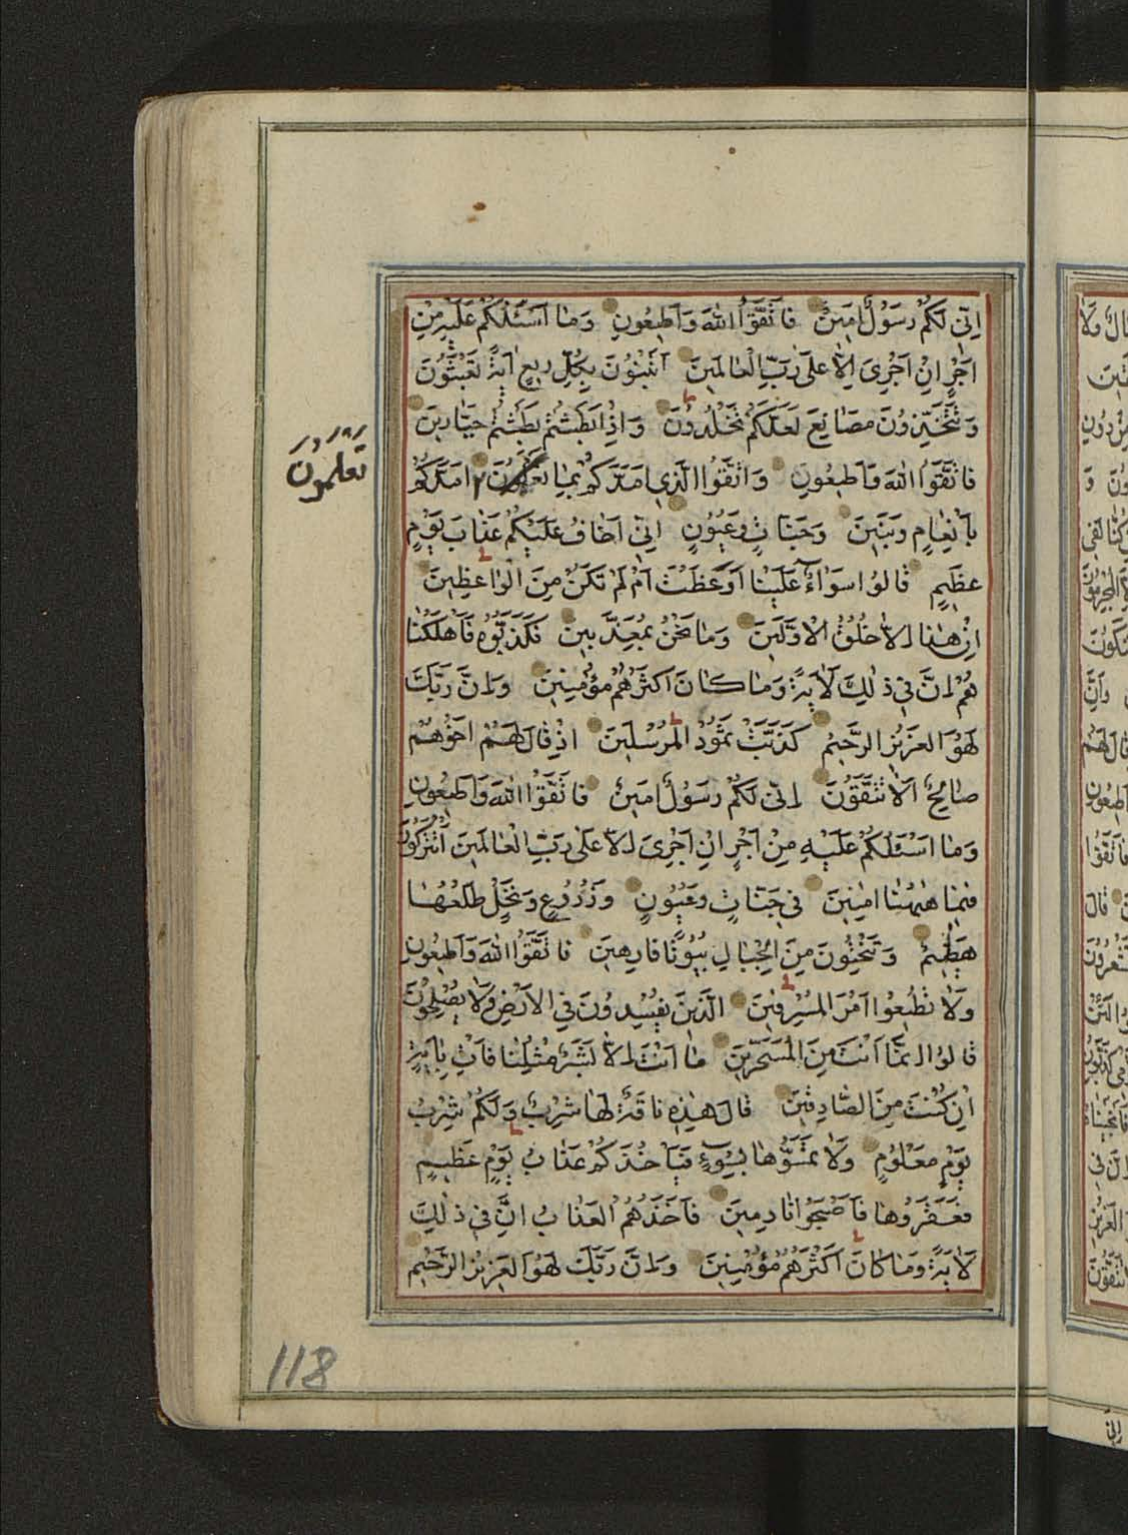 اِنّي لَكُمْ رَسُولٌ اَمِينٌ فَاتَّقُوا اللهَ وَاَطِيعُونِ وَمٰا اَسْئَلُكُمْ عَلَيْهِ مِنْ
اَجْرٍ اِنْ اَجْرِيَ اِلّٰا عَلٰى رَبِّ الْعٰالَمِينَ اَتَبْنُونَ بِكُلِّ رِيعٍ اٰيَةً تَعْبَثُونَ
وَتَتَّخِذُونَ مَصٰانِعَ لَعَلَّكُمْ تَخْلُدُونَ وَاِذٰا بَطَشْتُمْ بَطَشْتُمْ جَبّٰارِينَ
فَاتَّقُوا اللهَ وَاَطِيعُونِ وَاتَّقُوا الَّذِي اَمَدَّكُمْ بِمٰا اَمَدَّكُمْ
تَعْلَمُونَ
بِاَنْعٰامٍ وَبَنِينَ وَجَنّٰاتٍ وَعُيُونٍ اِنّي اَخٰافُ عَلَيْكُمْ عَذٰابَ يَوْمٍ
عَظِيمٍ قٰالُوا سَوٰاءٌ عَلَيْنٰا اَوَعَظْتَ اَمْ لَمْ تَكُنْ مِنَ الْوٰاعِظِينَ
اِنْ هٰذٰا اِلّٰا خُلُقُ الْاَوَّلِينَ وَمٰا نَحْنُ بِمُعَذَّبِينَ فَكَذَّبُوهُ فَاَهْلَكْنٰا
هُمْ اِنَّ فِي ذٰلِكَ لَاٰيَةً وَمٰا كٰانَ اَكْثَرُهُمْ مُؤْمِنِينَ وَاِنَّ رَبَّكَ
لَهُوَ الْعَزِيزُ الرَّحِيمُ كَذَّبَتْ ثَمُودُ الْمُرْسَلِينَ اِذْ قٰالَ لَهُمْ اَخُوهُمْ
صٰالِحٌ اَلٰا تَتَّقُونَ اِنّي لَكُمْ رَسُولٌ اَمِينٌ فَاتَّقُوا اللهَ وَاَطِيعُونِ
وَمٰا اَسْئَلُكُمْ عَلَيْهِ مِنْ اَجْرٍ اِنْ اَجْرِيَ اِلّٰا عَلٰى رَبِّ الْعٰالَمِينَ اَتُتْرَكُونَ
فِيمٰا هٰهُنٰا اٰمِنِينَ فِي جَنّٰاتٍ وَعُيُونٍ وَزُرُوعٍ وَنَخْلٍ طَلْعُهٰا
هَضِيمٌ وَتَنْحِتُونَ مِنَ الْجِبٰالِ بُيُوتًا فٰارِهِينَ فَاتَّقُوا اللهَ وَاَطِيعُونِ
وَلٰا تُطِيعُوا اَمْرَ الْمُسْرِفِينَ الَّذِينَ يُفْسِدُونَ فِي الْاَرْضِ وَلٰا يُصْلِحُونَ
قٰالُوا اِنَّمٰا اَنْتَ مِنَ الْمُسَحَّرِينَ مٰا اَنْتَ اِلّٰا بَشَرٌ مِثْلُنٰا فَاْتِ بِاٰيَةٍ
اِنْ كُنْتَ مِنَ الصّٰادِقِينَ قٰالَ هٰذِهِ نٰاقَةٌ لَهٰا شِرْبٌ وَلَكُمْ شِرْبُ
يَوْمٍ مَعْلُومٍ وَلٰا تَمَسُّوهٰا بِسُوءٍ فَيَاْخُذَكُمْ عَذٰابُ يَوْمٍ عَظِيمٍ
فَعَقَرُوهٰا فَاَصْبَحُوا نٰادِمِينَ فَاَخَذَهُمُ الْعَذٰابُ اِنَّ فِي ذٰلِكَ
لَاٰيَةً وَمٰا كٰانَ اَكْثَرُهُمْ مُؤْمِنِينَ وَاِنَّ رَبَّكَ لَهُوَ الْعَزِيزُ الرَّحِيمُ
118